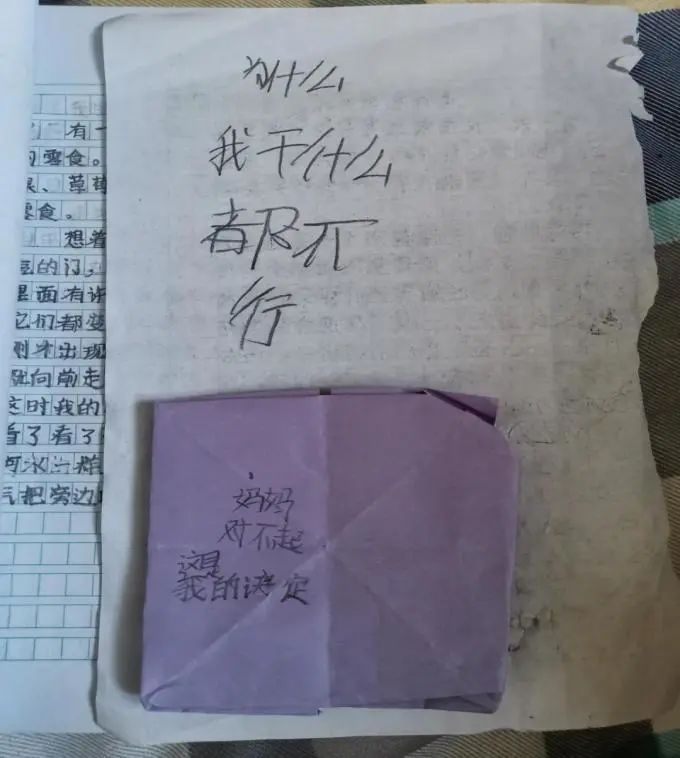 有一
零食。
、草莓
零食。
想着
的门，
里面有许
它们都变
才出现
向前走
这时我的
看了看了
把旁边
为什么
我干什么
都不
行
妈妈
对不起
这是
我的决定